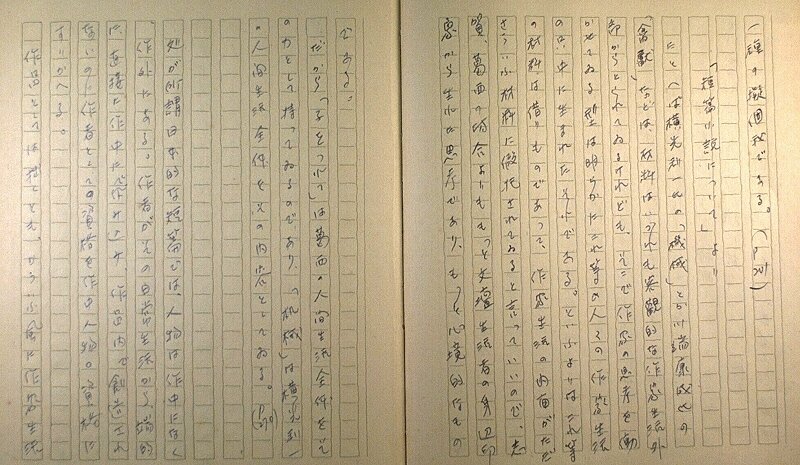 一種の擬個我である。
「短篇小説について」より
たとへば横光利一氏の「機械」とか川端康成氏の
「禽獣」などは、材料はいづれも客観的な作家生活外
部からとられてゐるけれども、そこで作家の思考を動
かせてゐる型は明らかにこれ等の人々の作家生活
の中に生まれたそれである。といふよりはこれ等
の材料は借りものであつて、作家生活の内面がただ
さういふ材料に仮托されてゐると言つていいので、志
賀、葛西の場合よりももつと文壇生活者の身辺的
思から生れた思考であり、もつと心境的なもの
である。
だから「子をつれて」は葛西の人間生活全体をその
の力として持つてゐるのであり、「機械」は横光利一
の人間生活全体をその内容としてゐる。
処が所謂日本的な短篇では、人物は作中になく
作外にある。作者がその日常生活から端的
に直接に作中に
ないのに作者としての資格を作中人物の資格に
すりかへる。
作品としては独立とも、かういふ風に作家生活